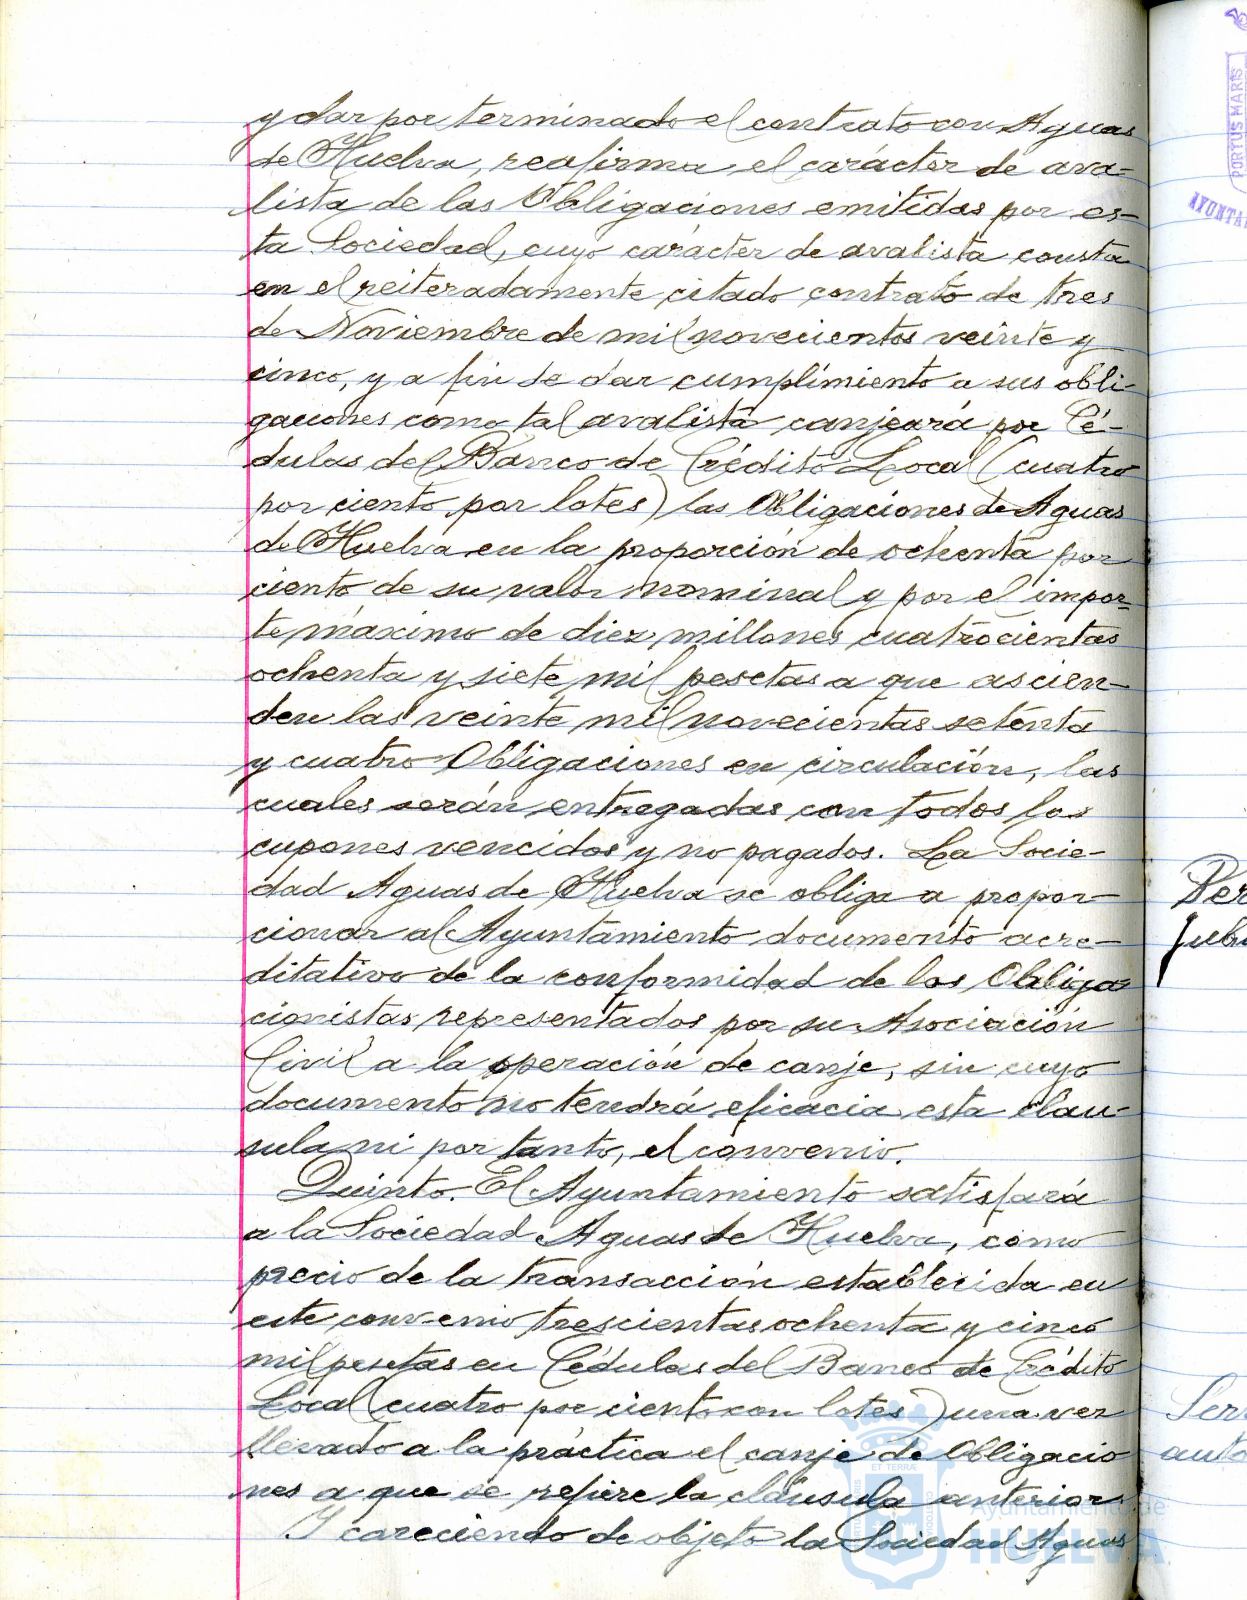 y dar por terminado el contrato con Aguas
de Huelva, reafirma el carácter de ava-
lista de las Obligaciones emitidas por es-
ta Sociedad, cuyo carácter de avalista consta
en el reiteradamente citado contrato de tres
de Noviembre de mil novecientos veinte y
cinco, y a fin de dar cumplimiento a sus obli-
gaciones como tal avalista canjeará por Cé-
dulas del Banco de Crédito Local (cuatro
por ciento por lotes) las Obligaciones de Aguas
de Huelva en la proporción de ochenta por
ciento de su valor nominal y por el impor-
te máximo de diez millones cuatrocientas
ochenta y siete mil pesetas a que ascien-
den las veinte mil novecientas setenta
y cuatro Obligaciones en circulación, las
cuales serán entregadas con todos los
cupones vencidos y no pagados. La Socie-
dad Aguas de Huelva se obliga a propor-
cionar al Ayuntamiento documento acre-
ditativo de la conformidad de los Obliga
cionistas representados por su Asociación
Civil a la operación de canje, sin cuyo
documento no tendrá eficacia esta clau-
sula ni por tanto, el convenio.
Quinto. El Ayuntamiento satisfará
a la Sociedad Aguas de Huelva, como
precio de la transacción establecida en
este convenio trescientas ochenta y cinco
mil pesetas en Cédulas del Banco de Crédito
Local (cuatro por ciento con lotes) una vez
llevado a la práctica el canje de Obligacio
nes a que se refiere la cláusula anterior.
Y careciendo de objeto la Sociedad Aguas
PORTUS MARIS
ET TERRÆ
Ayuntamiento de
HUELVA